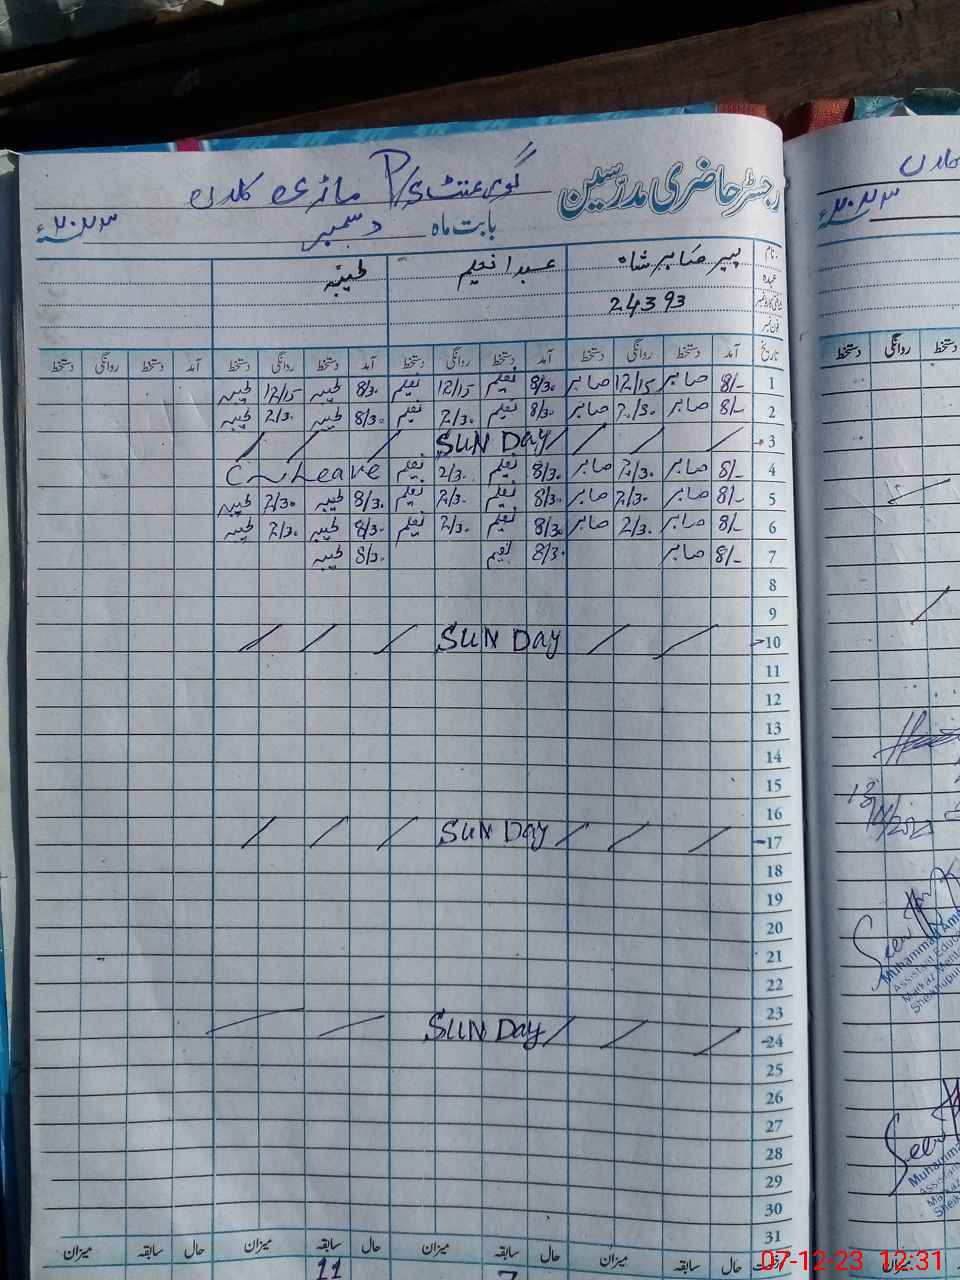 رجسٹر حاضری مدرسین گورنمنٹ P/S ماڑی کلاں
بابت ماہ دسمبر ۲۰۲۳ء
نام پیر صابر شاہ عبدالنعیم طیبہ
عہدہ
24393
فون نمبر
تاریخ آمد دستخط روانگی دستخط آمد دستخط روانگی دستخط آمد دستخط روانگی دستخط آمد دستخط روانگی دستخط
1 8/- صابر 12/15 صابر 8/30 نعیم 12/15 نعیم 8/30 طیبہ 12/15 طیبہ
2 8/- صابر 2/30 صابر 8/30 نعیم 2/30 نعیم 8/30 طیبہ 2/30 طیبہ
3 SUNDAY
4 8/- صابر 2/30 صابر 8/30 نعیم 2/30 نعیم C~Leave
5 8/- صابر 2/30 صابر 8/30 نعیم 2/30 نعیم 8/30 طیبہ 2/30 طیبہ
6 8/- صابر 2/30 صابر 8/30 نعیم 2/30 نعیم 8/30 طیبہ 2/30 طیبہ
7 8/- صابر 8/30 نعیم 8/30 طیبہ
8
9
10 SUNDAY
11
12
13
14
15
16
17 SUNDAY
18
19
20
21
22
23
24 SUNDAY
25
26
27
28
29
30
31
حال سابقہ میزان حال سابقہ میزان حال سابقہ میزان حال سابقہ میزان
11
۲۰۲۳ء
دستخط روانگی دستخط
Muhammad
Assistant
Markaz
Muhammad
میزان
07-12-23 12:31